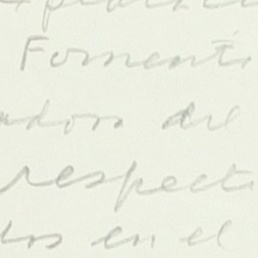 Fomento
ador del
respecti
dos en el